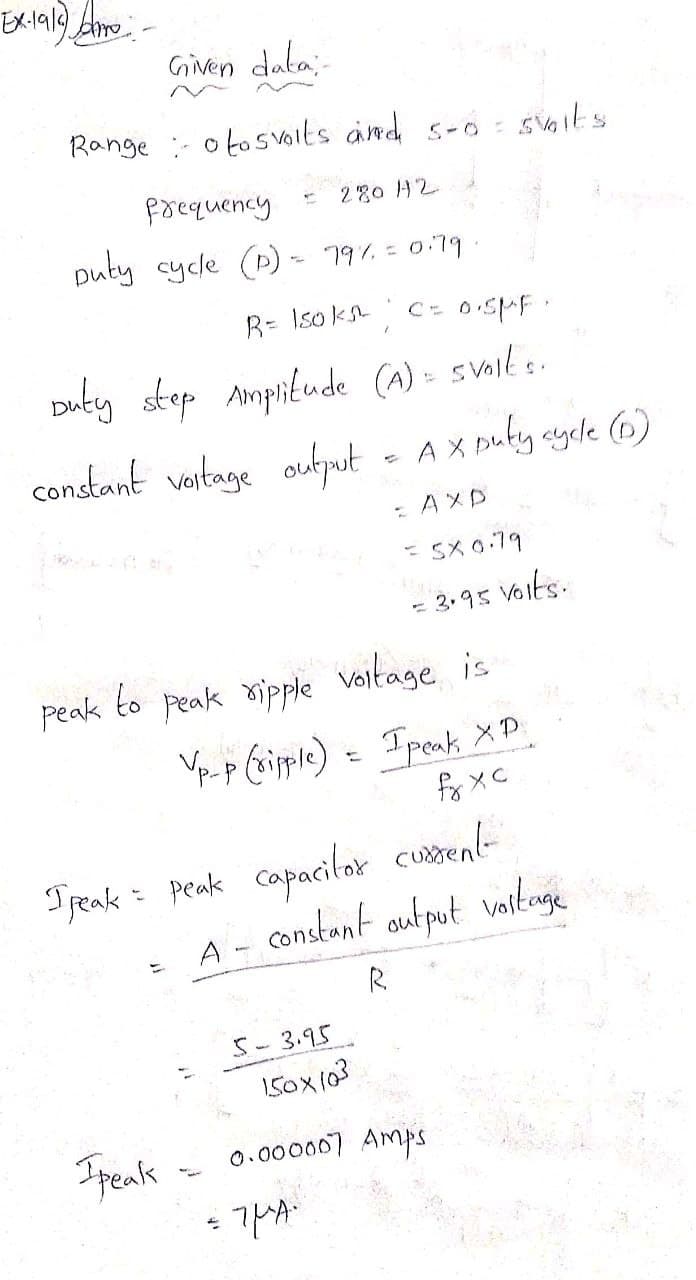 Ex-19/c) Ans:-
Given data:-
Range :- 0 to 5 volts and 5-0 = 5 Volts
frequency = 280 HZ
Duty cycle (D) = 79% = 0.79.
R = 150 kΩ ; C = 0.5µF.
Duty step Amplitude (A) = 5 Volts.
constant voltage output = A X Duty cycle (D)
= A X D
= 5X 0.79
= 3.95 Volts.
peak to peak ripple voltage is
Vp-p (ripple) = Ipeak X D
fr X C
Ipeak = peak capacitor current
= A - constant output voltage
R
= 5 - 3.95
150 X 10³
Ipeak = 0.000007 Amps
= 7µA.